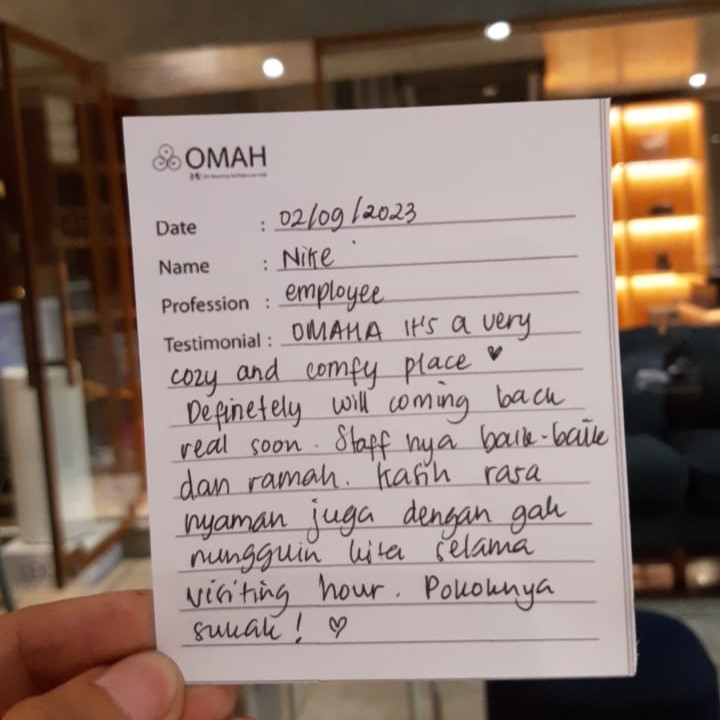 OMAH
Date : 02/09/2023
Name : Nike
Profession : employee
Testimonial : OMAHA It's a very
cozy and comfy place ♥
Definetely will coming back
real soon. Staff nya baik-baik
dan ramah. Kasih rasa
nyaman juga dengan gak
nungguin kita selama
visiting hour. Pokoknya
sukak! ♡